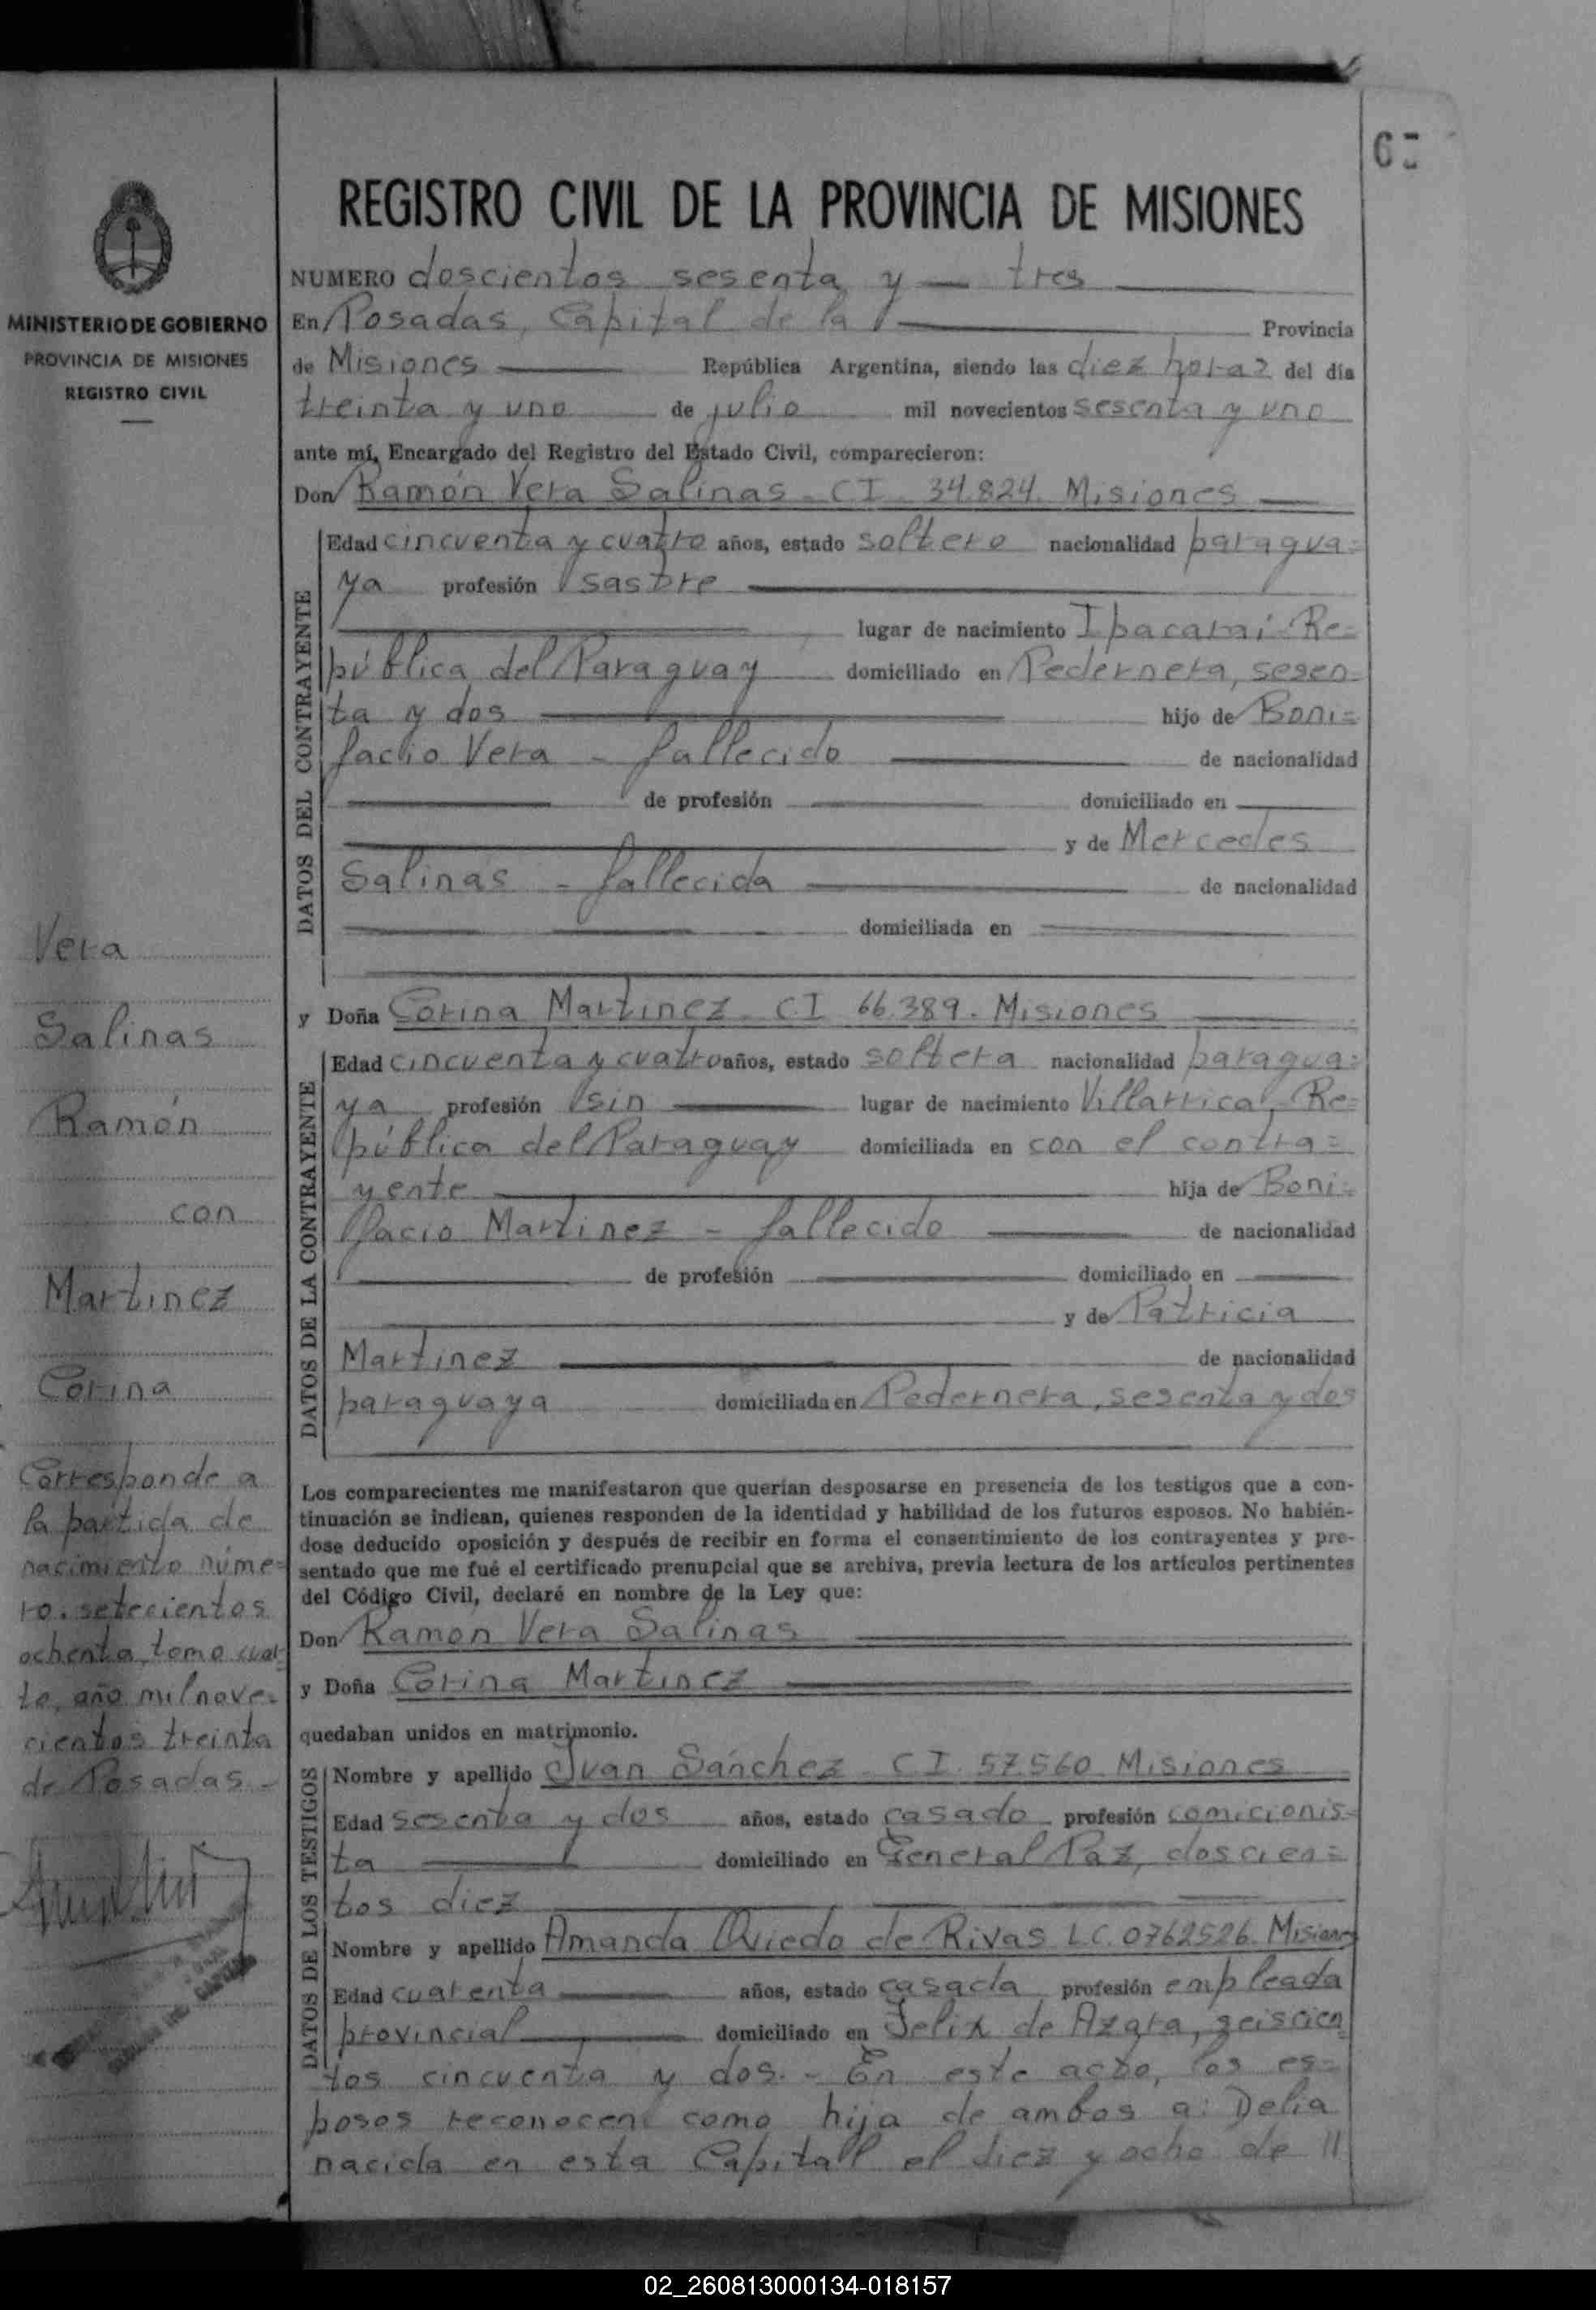 REGISTRO CIVIL DE LA PROVINCIA DE MISIONES
NUMERO doscientos sesenta y tres
En Posadas, Capital de la Provincia
de Misiones República Argentina, siendo las diez horas del día
treinta y uno de julio mil novecientos sesenta y uno
ante mí, Encargado del Registro del Estado Civil, comparecieron:
Don Ramón Vera Salinas - CI - 34.824. Misiones
DATOS DEL CONTRAYENTE
Edad cincuenta y cuatro años, estado soltero nacionalidad paragua=
ya profesión sastre
lugar de nacimiento Ipacarai - Re=
pública del Paraguay domiciliado en Pedernera, sesen=
ta y dos hijo de Boni=
facio Vera - fallecido de nacionalidad
de profesión domiciliado en
y de Mercedes
Salinas - fallecida de nacionalidad
domiciliada en
y Doña Corina Martinez - C.I 66.389. Misiones
DATOS DE LA CONTRAYENTE
Edad cincuenta y cuatro años, estado soltera nacionalidad paragua=
ya profesión sin lugar de nacimiento Villarrica, Re=
pública del Paraguay domiciliada en con el contra=
yente hija de Boni=
facio Martinez - fallecido de nacionalidad
de profesión domiciliado en
y de Patricia
Martinez de nacionalidad
paraguaya domiciliada en Pedernera, sesenta y dos
Los comparecientes me manifestaron que querían desposarse en presencia de los testigos que a con-
tinuación se indican, quienes responden de la identidad y habilidad de los futuros esposos. No habién-
dose deducido oposición y después de recibir en forma el consentimiento de los contrayentes y pre-
sentado que me fué el certificado prenupcial que se archiva, previa lectura de los artículos pertinentes
del Código Civil, declaré en nombre de la Ley que:
Don Ramon Vera Salinas
y Doña Corina Martinez
quedaban unidos en matrimonio.
DATOS DE LOS TESTIGOS
Nombre y apellido Juan Sánchez - C I. 57.560 Misiones
Edad sesenta y dos años, estado casado profesión comicionis=
ta domiciliado en General Paz, doscien=
tos diez
Nombre y apellido Amanda Oviedo de Rivas L C. 0762526. Misiones
Edad cuarenta años, estado casada profesión empleada
provincial domiciliado en Felix de Azara, seiscien=
tos cincuenta y dos. - En este acto, los es=
posos reconocen como hija de ambos a: Delia
nacida en esta Capital el diez y ocho de //
MINISTERIO DE GOBIERNO
PROVINCIA DE MISIONES
REGISTRO CIVIL
Vera
Salinas
Ramón
con
Martinez
Corina
Corresponde a
la partida de
nacimiento núme=
ro: setecientos
ochenta, tomo cuar=
to, año mil nove=
cientos treinta
de Posadas -
02_260813000134-018157